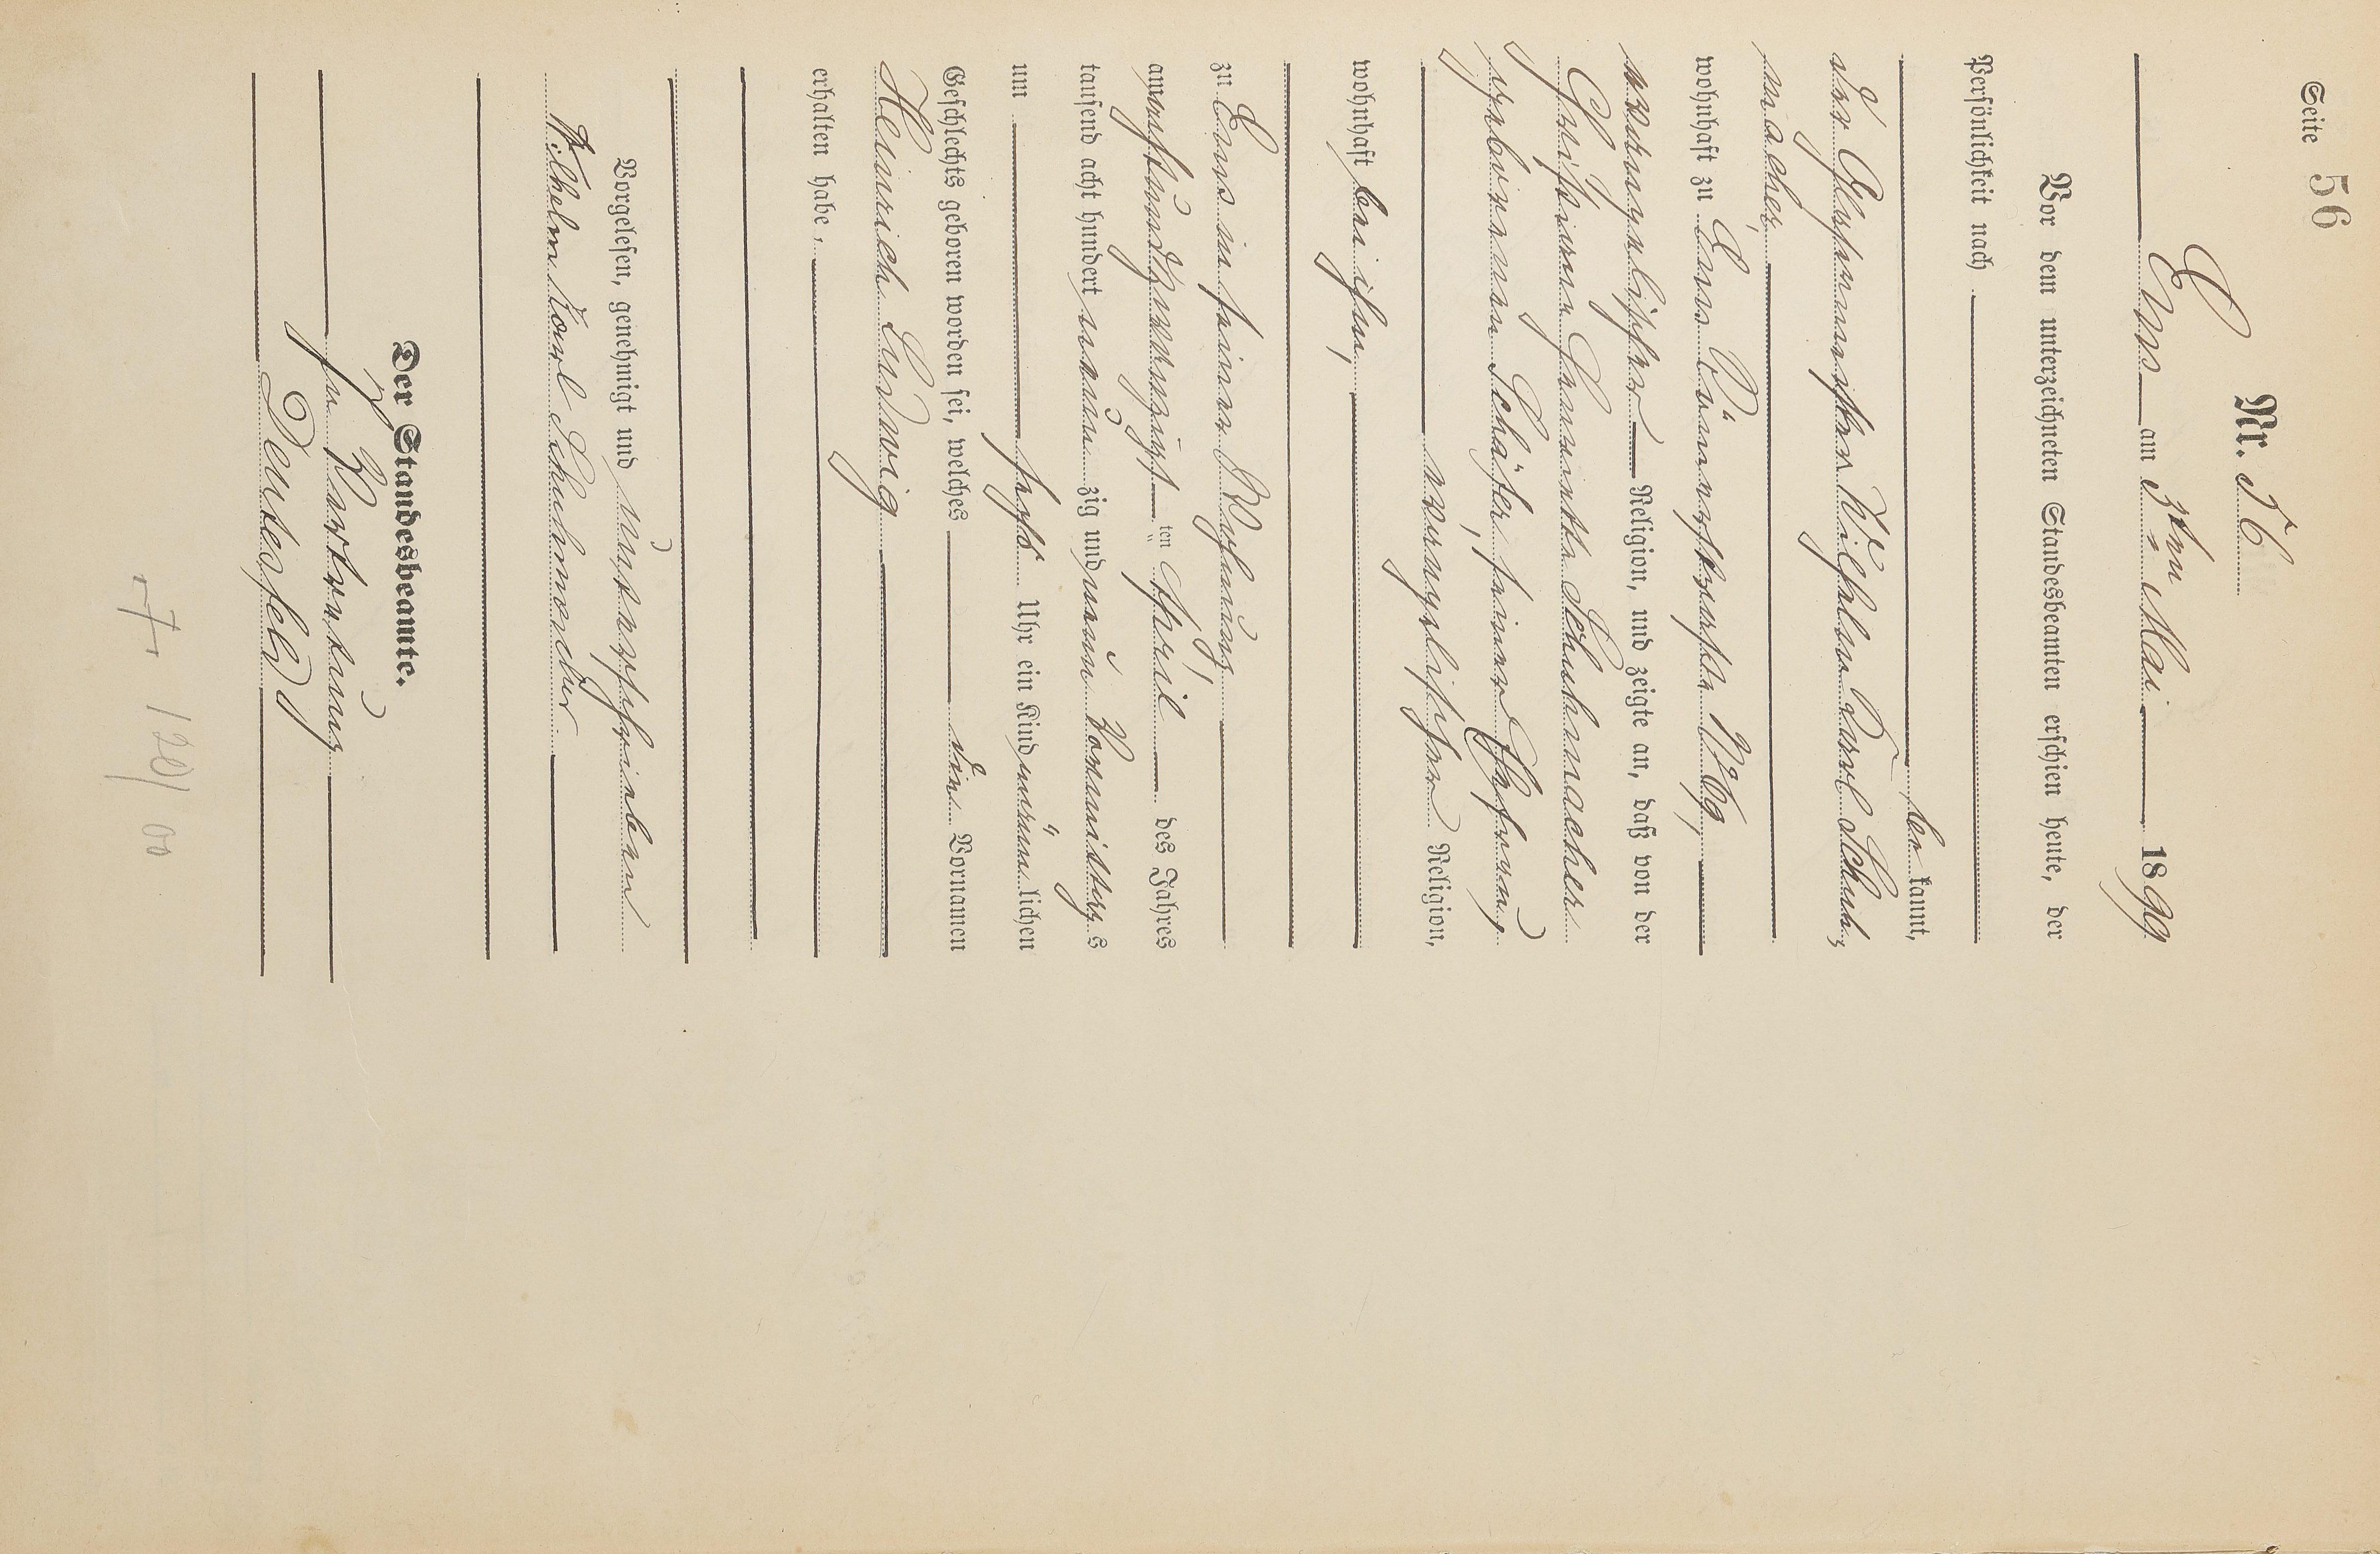 Seite 56
Nr. 56
Ems am 3ten Mai 1899
Vor dem unterzeichneten Standesbeamten erschien heute, der
Persönlichkeit nach
be kannt,
der Wilhelm Karl Schuh⸗
macher,
wohnhaft zu Ems, No 69,
evangelischer Religion, und zeigte an, daß von der
Christiane Henriette Schuhmacher
geborenen Schäfer, seiner Ehefrau,
evangelischer Religion,
wohnhaft bei ihm,
zu Ems in seiner Wohnung,
am neunundzwanzigsten April des Jahres
tausend acht hundert neun zig und neun Vormittags
um sechs Uhr ein Kind männlichen
Geschlechts geboren worden sei, welches die Vornamen
Heinrich Ludwig
erhalten habe.
Vorgelesen, genehmigt und unterschrieben
Wilhelm Karl Schuhmacher
Der Standesbeamte.
In Vertretung
† 120/00